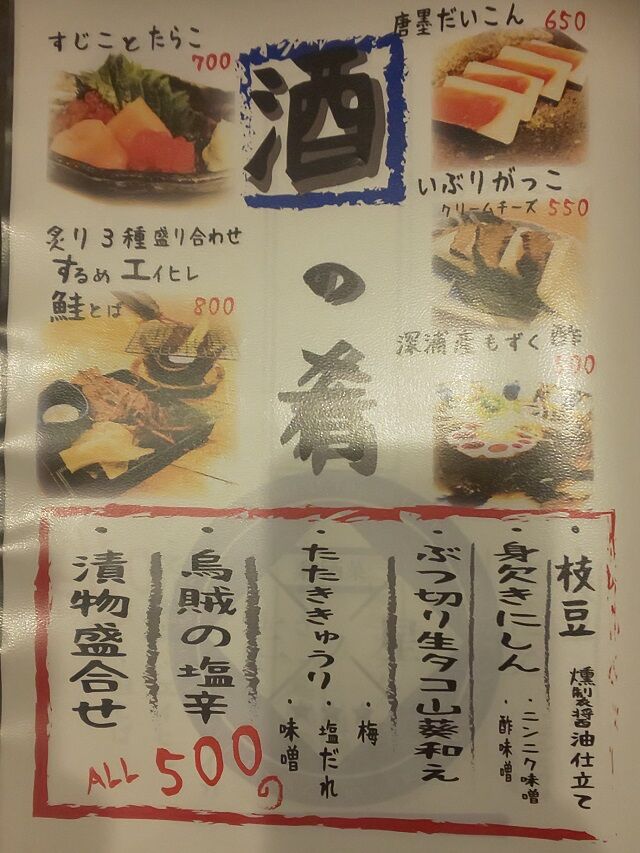 酒の肴
すじことたらこ
700
唐墨だいこん 650
いぶりがっこ
クリームチーズ 550
炙り3種盛り合わせ
するめ エイヒレ
鮭とば 800
深浦産もずく酢
500
・枝豆 燻製醤油仕立て
・身欠きにしん ・ニンニク味噌
・酢味噌
・ぶつ切り生タコ山葵和え
・たたききゅうり ・梅
・塩だれ
・味噌
・烏賊の塩辛
・漬物盛合せ
ALL 500